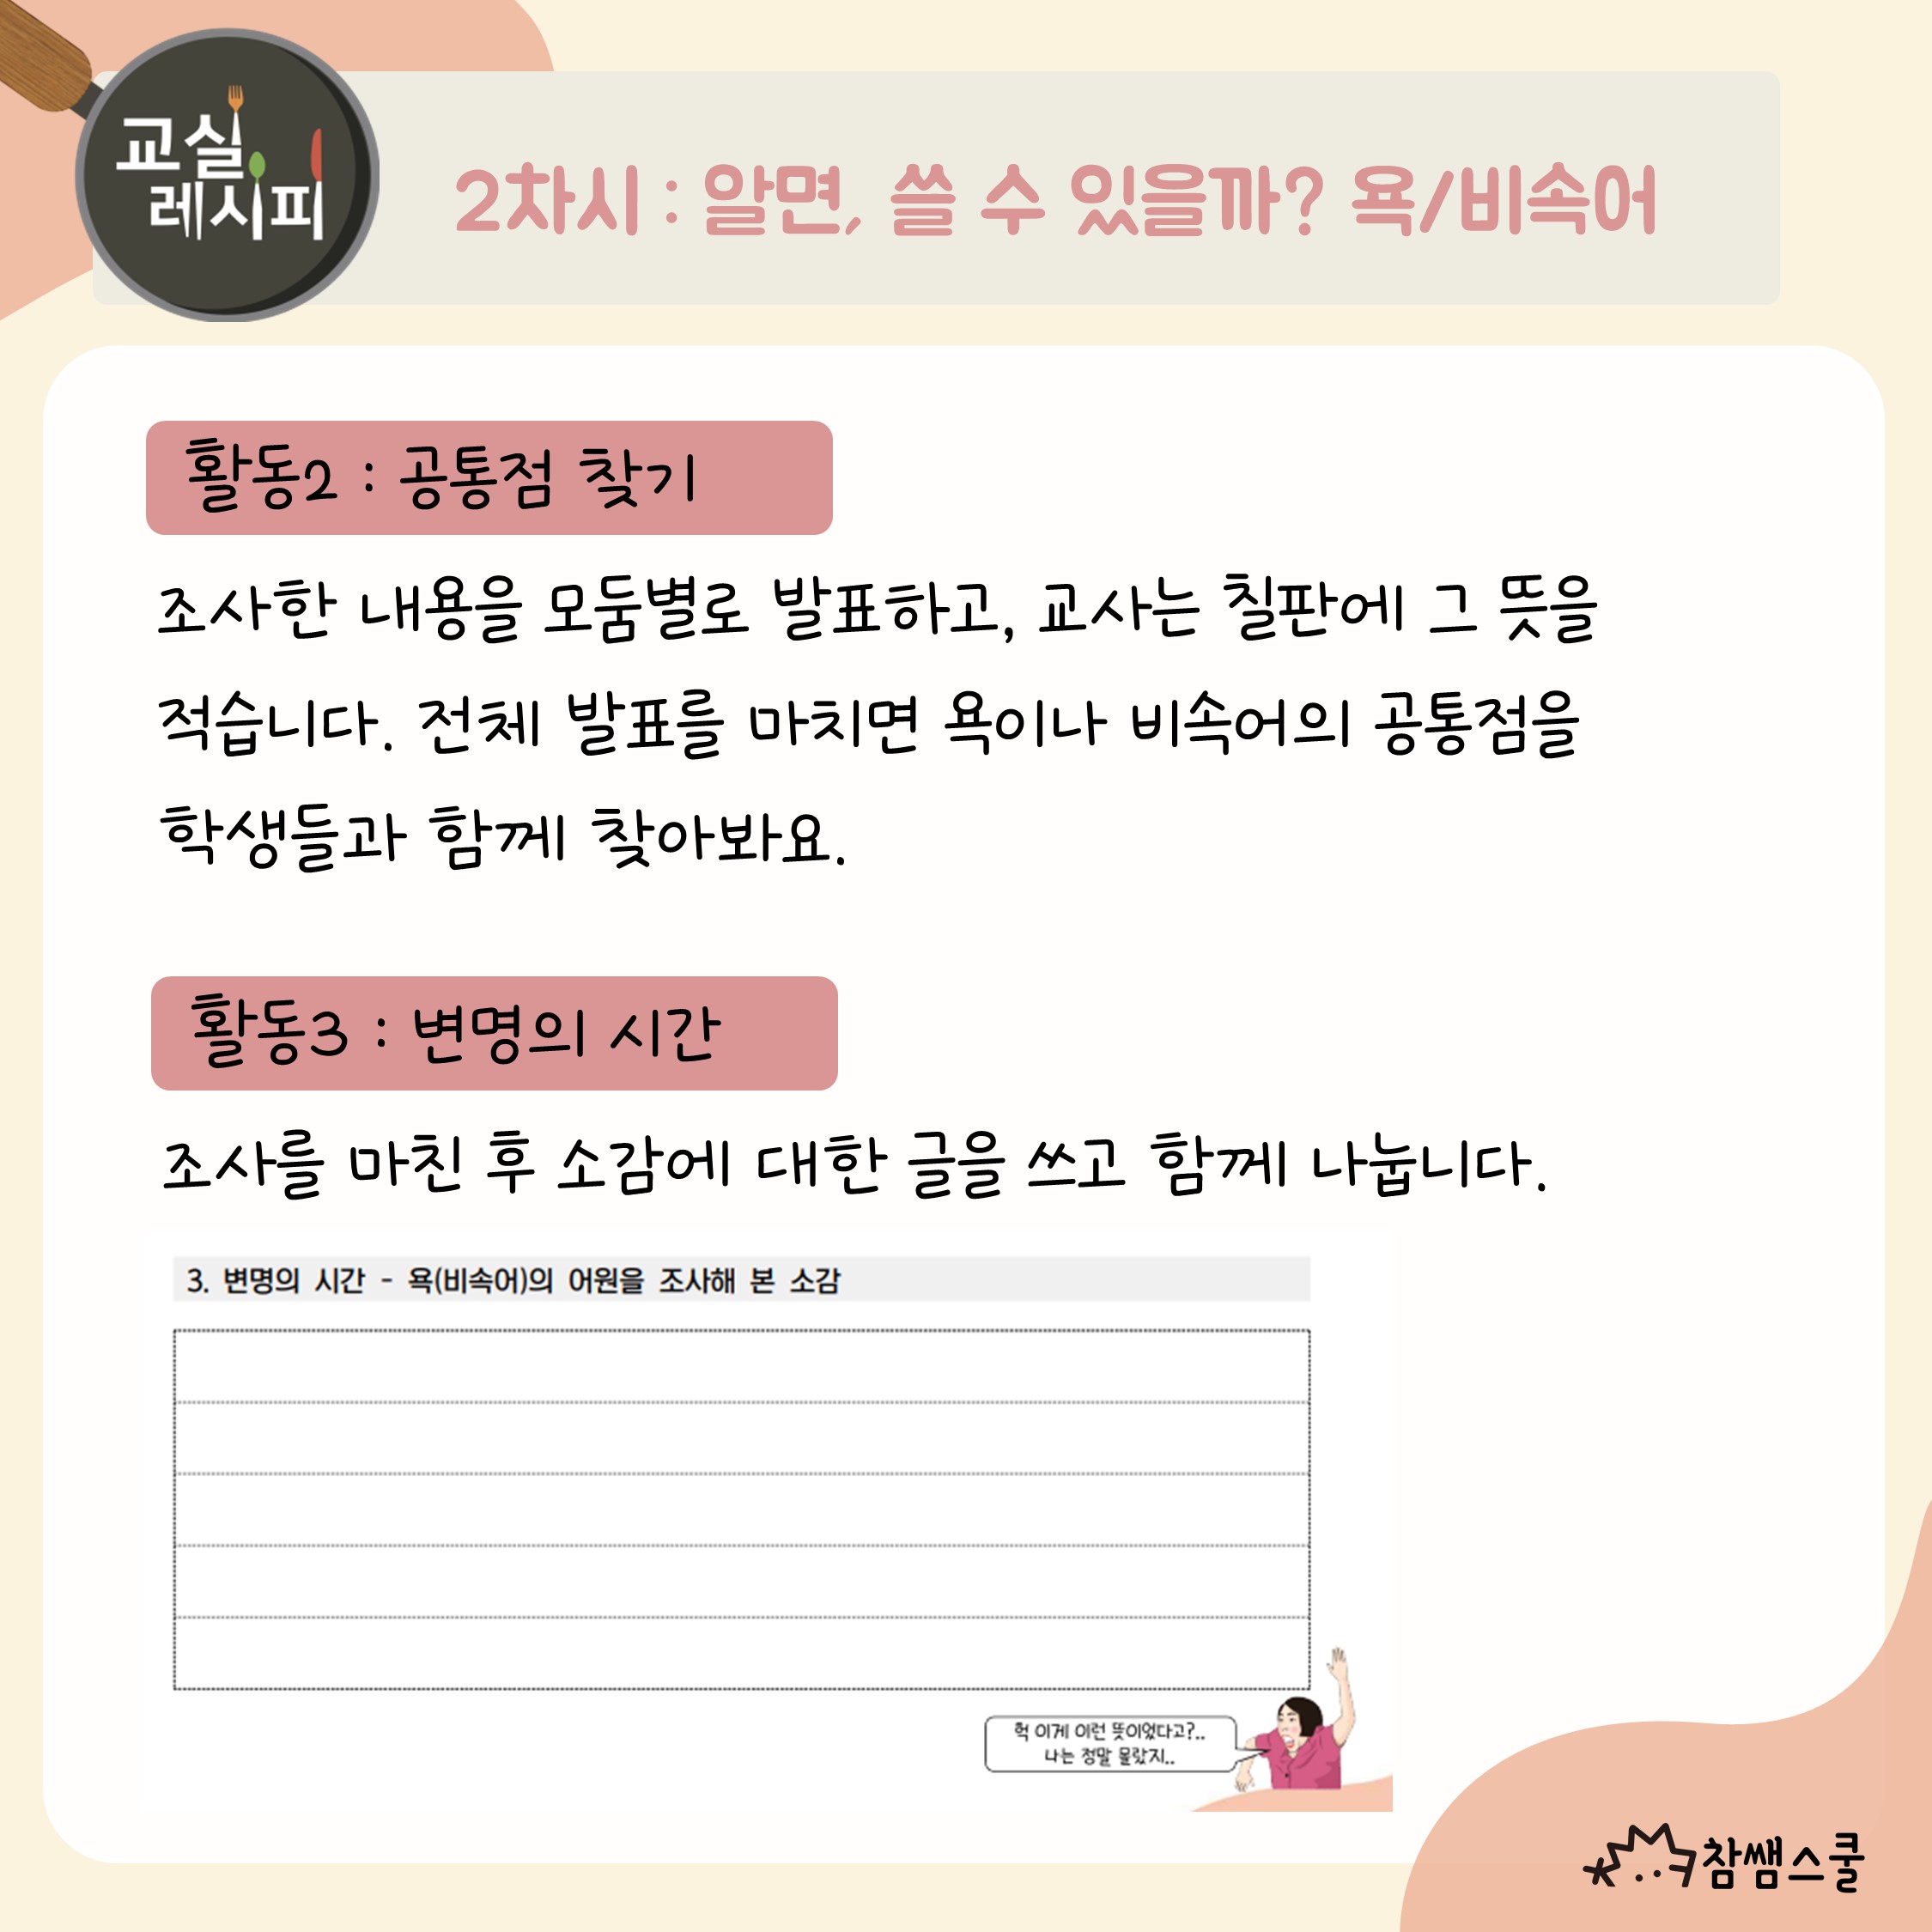 교실
레시피
2차시 : 알면, 쓸 수 있을까? 욕/비속어
활동2 : 공통점 찾기
조사한 내용을 모둠별로 발표하고, 교사는 칠판에 그 뜻을
적습니다. 전체 발표를 마치면 욕이나 비속어의 공통점을
학생들과 함께 찾아봐요.
활동3 : 변명의 시간
조사를 마친 후 소감에 대한 글을 쓰고 함께 나눕니다.
3. 변명의 시간 - 욕(비속어)의 어원을 조사해 본 소감
헉 이게 이런 뜻이었다고?..
나는 정말 몰랐지..
참쌤스쿨